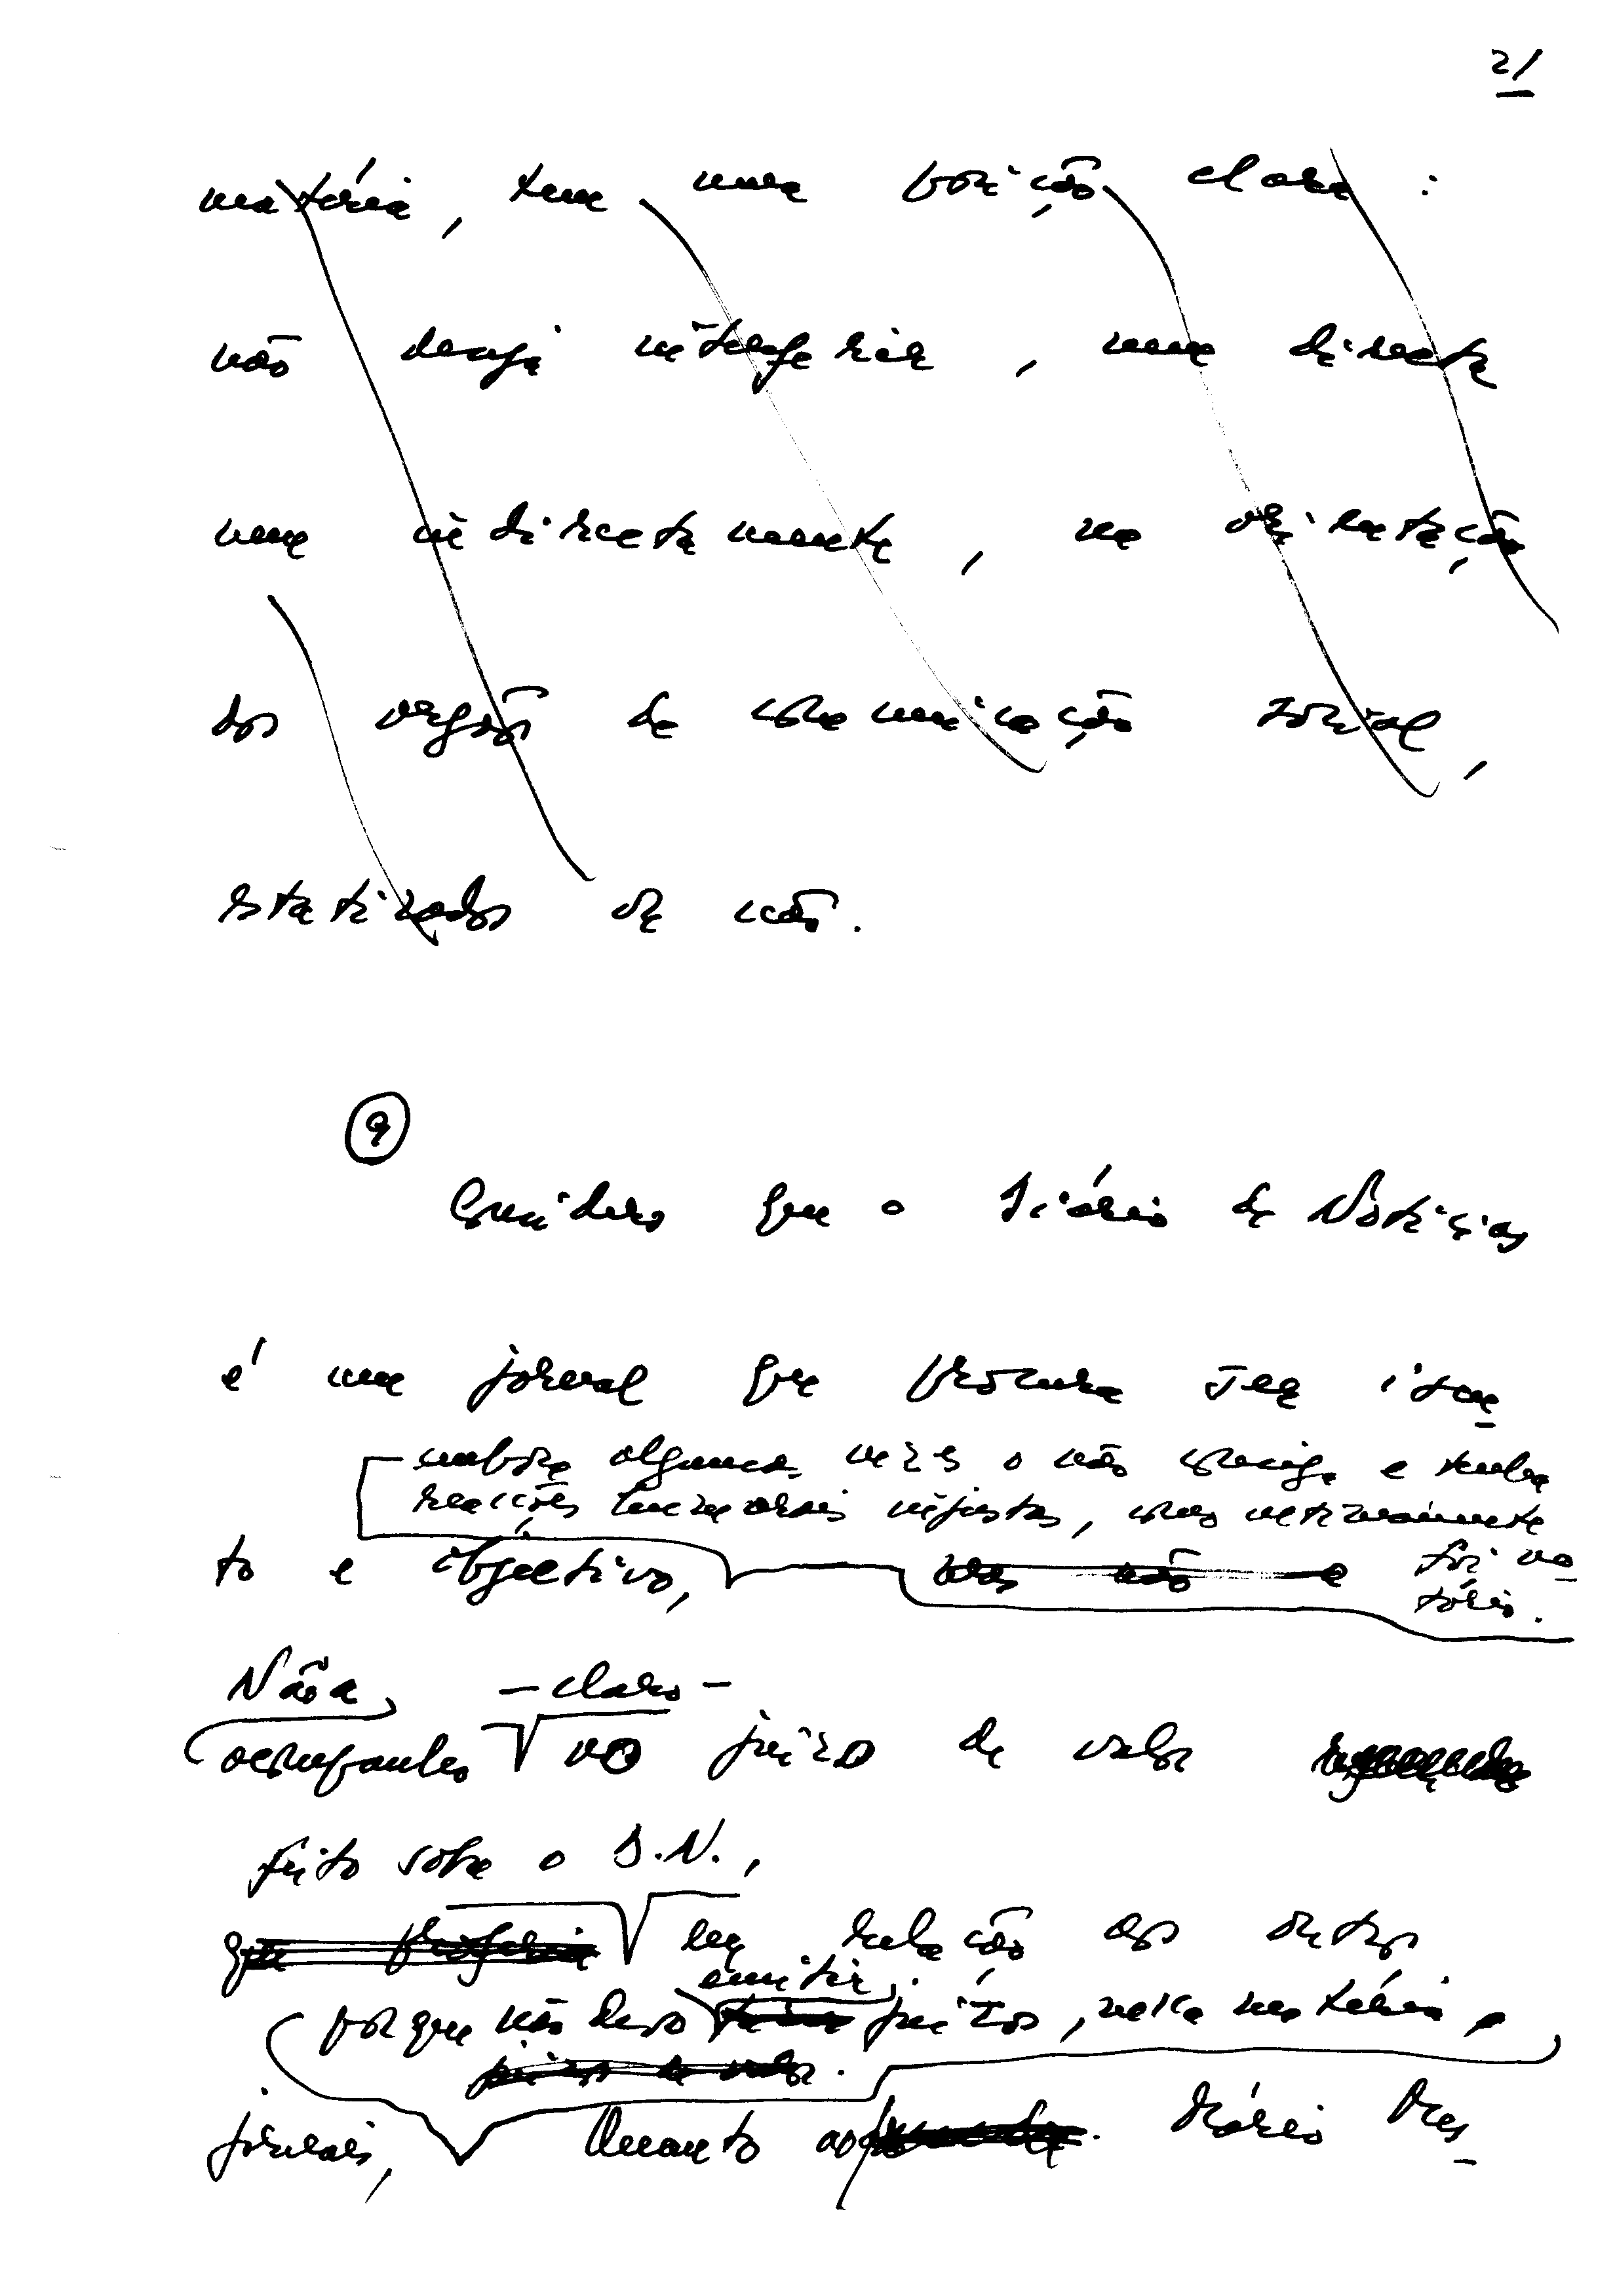 21
matéria, tem uma posição clara:
não deseja interferir, nem directa
nem indirectamente, na orientação
dos orgãos de comunicação social,
estatizados ou não.
9
Considero que o Diário de Notícias
é um jornal que procura ser isen-
embora algumas vezes o não consiga e tenha
reacções injustas, mas
to e objectivo, mas não e foi no-
tório.
Não a, - claro -
acompanho no juízo de valor
feito sobre o D.N.,
em relação aos outros
emitir
porque não devo juízos, nesta matéria,
juízos de valor.
jornais, Quanto ao Diário